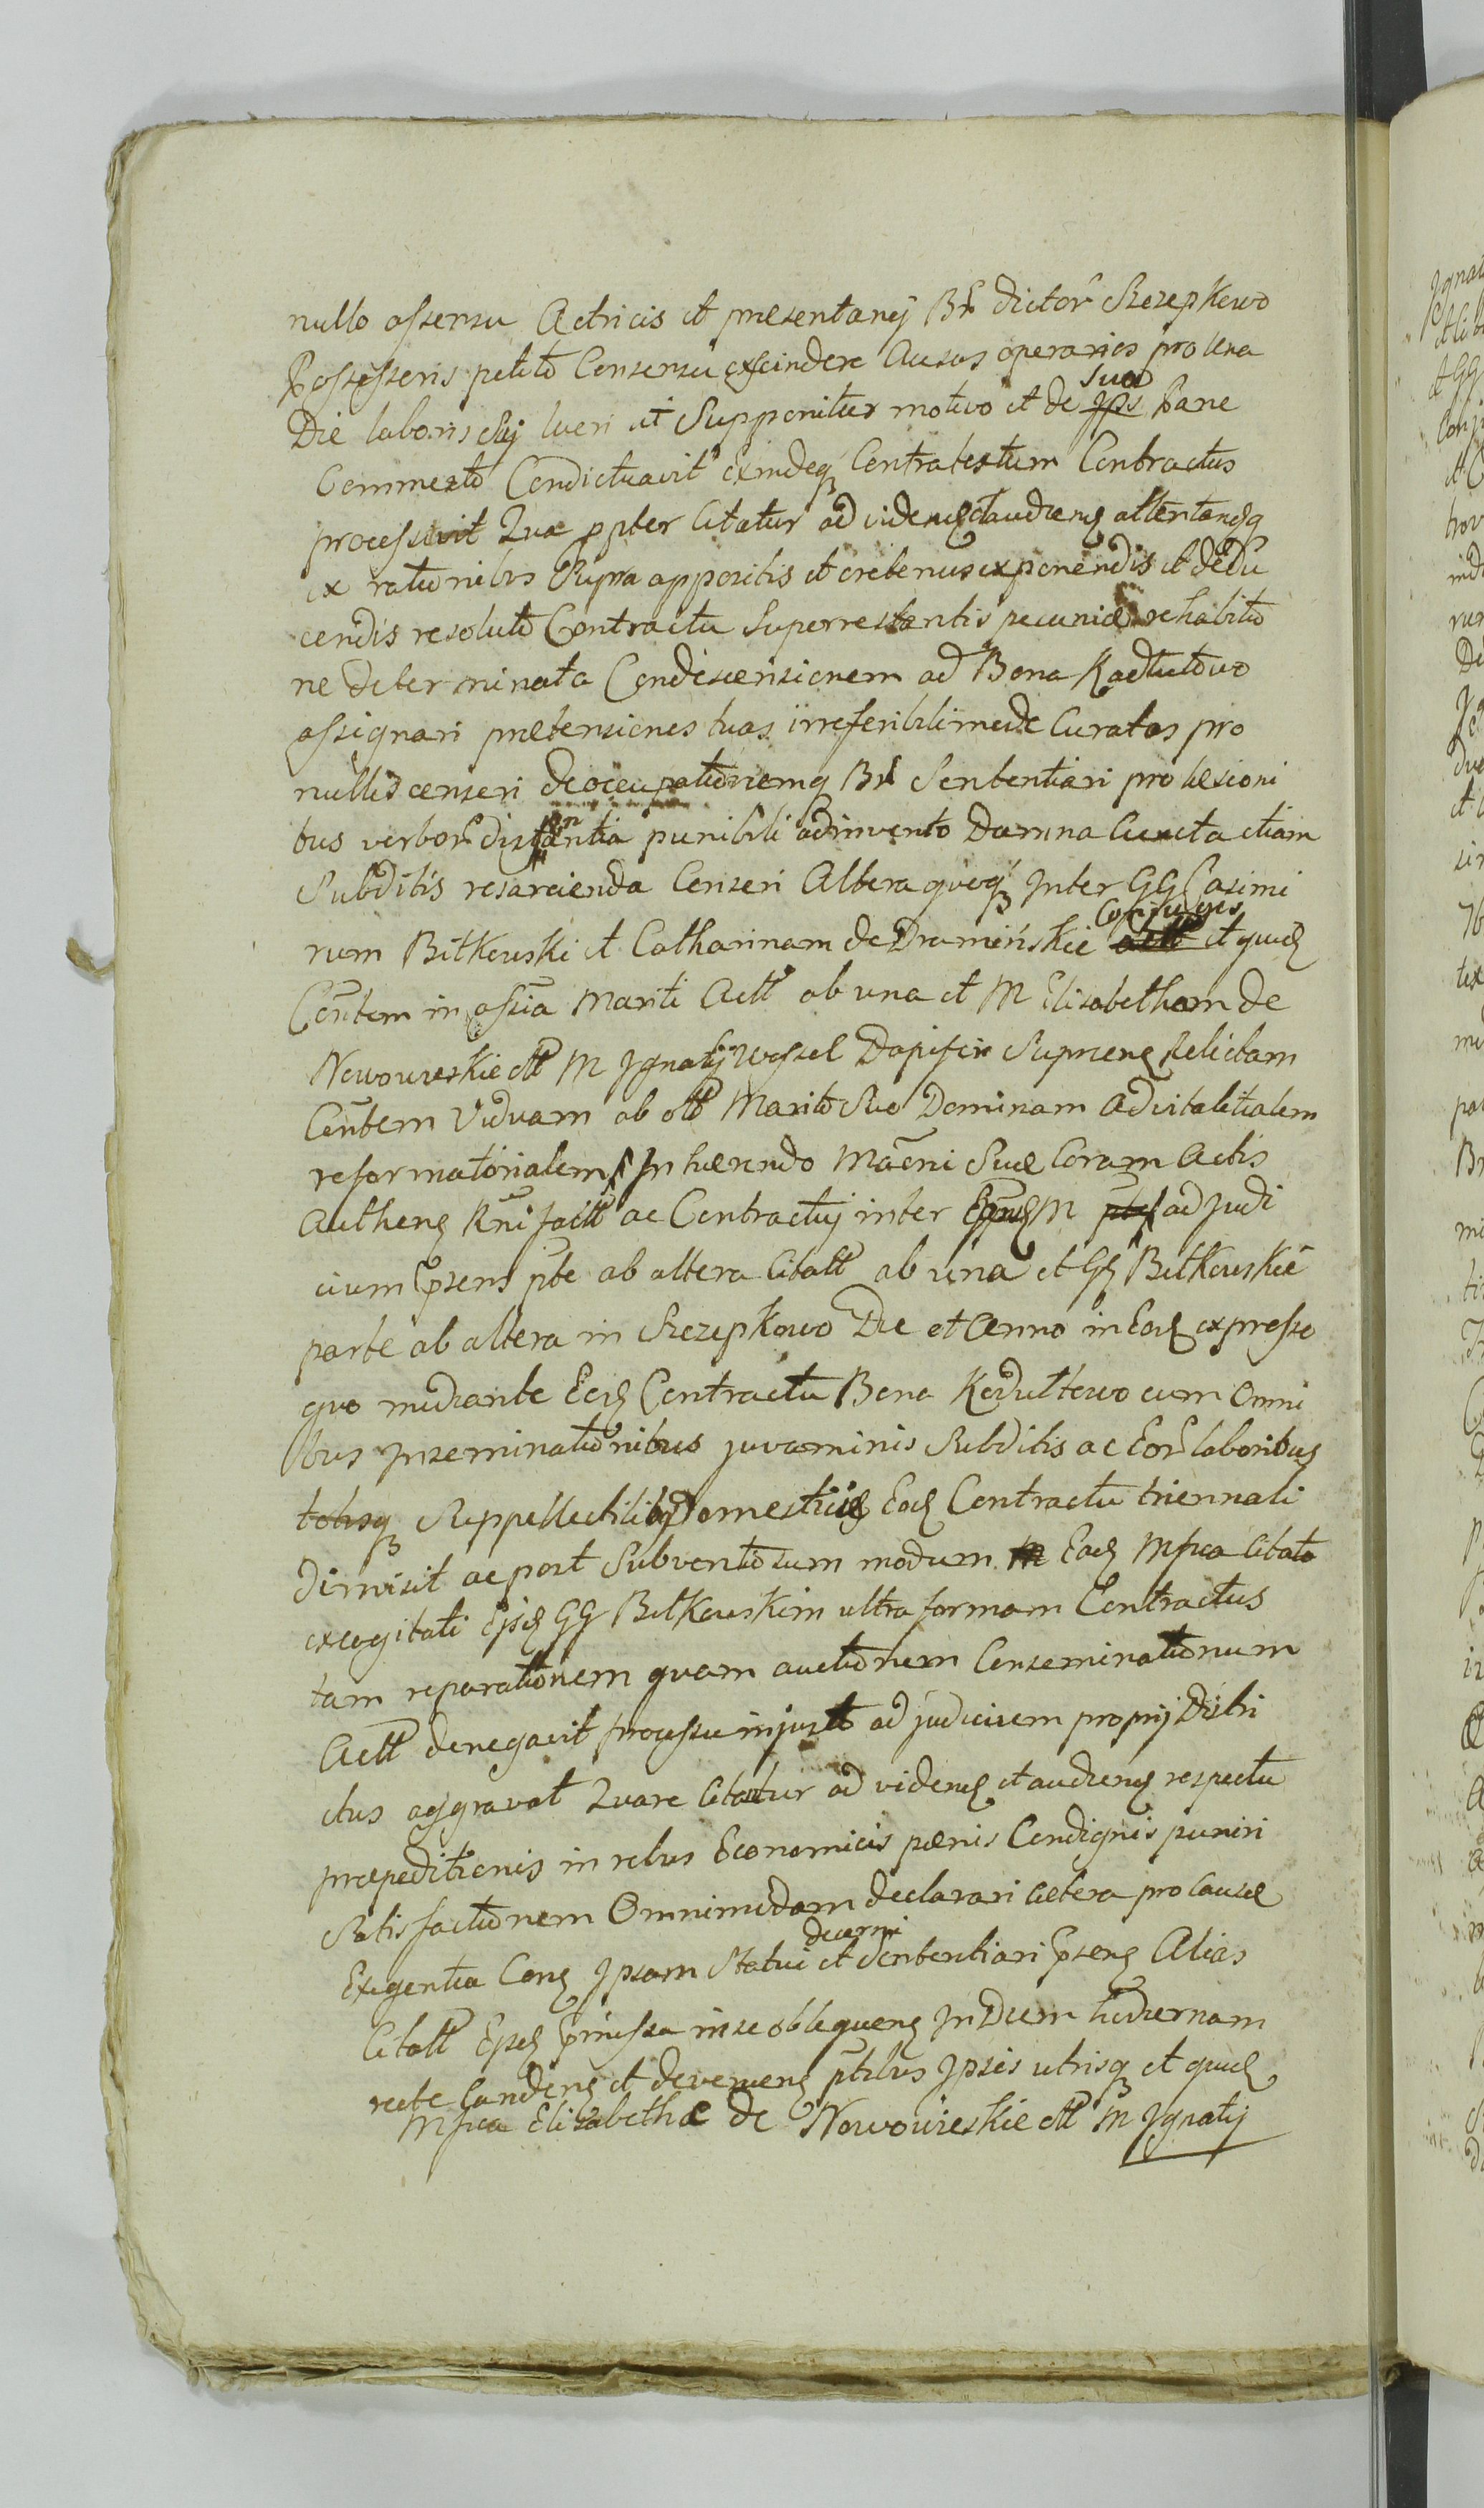 nullo assensu Actricis et presentanej Br dictor Szczepkowo
Possessoris petito Consensu exscindere Ausus operarios pro Una
Die laboris Sui lueri ut Supponitur motivo et de Sua Pane
Commesto Condictuavit Exindeq Contratextum Contractus
processuit Qua ppter Citatur ad videnđ et audienđ attentanđq
ex rationibus Supra appositis et oretenus exponendis et dedu
cendis resoluto Contractu Superrestantis pecuniæ rehabitio
ne determinata Condescensionem ad Bona Kadłutowo
assignari prætensiones tuas irreferibilimode Curatas pro
nullis censeri deoccupationemq Br Sententiari pro læsioni
bus verbor distantia punibili adinvento Damna Cuncta etiam
Subditis resarcienda Censeri Altera quoq Inter GG Casimi
rum Bitkowski et Catharinam de Dramińskie Conjuges et quid
Contem in assia Mariti Actt ab una et M Elisabetham de
Nowowieskie ctt M Ignatij Wessel Dapiferi Suprens Relictam
Contem Viduam ab ott Marito Suo Dominam advitalitialem
reformatorialem Inhærendo Maoni Suæ Coram Actis
Authens Rni factt ac Contractuj inter M ad Judi
cium psens pte ab altera Citatt ab una et GG Bitkowskie
parte ab altera in Szczepkowo Die et Anno in Eod expresso
quo mediante Eod Contractu Bona Kodułtowo cum Omni
bus Inseminationibus juvaminis Subditis ac Eor laboribus
totisq Suppellectilibq Domesticis Eod Contractu triennali
dimisit ac post Subventosum modum Ead Mfica Citata
excogitati Epsis GG Bitkowskim ultra formam Contractus
tam reparationem quam auctionem Conseminationum
Actt denegavit processu injusto ad judicium proprij Distri
ctus aggravat Quare Citatur ad videnđ et audienđ respectu
præpeditionis in rebus Economicis pænis Condignis puniri
Satisfactionem Omnimodam declarari Cetera pro Causæ
Exigentia Conđ Ipsam Statui decerni et Sententiari psens Alias
Citatt Epsđ pmissa in se obloquens In Diem hodiernam
recte Candens et deveniens ptibus Ipsis utrisq et quid
Mfica Elisabethæ de Nowowieskie ctt M Ignatij